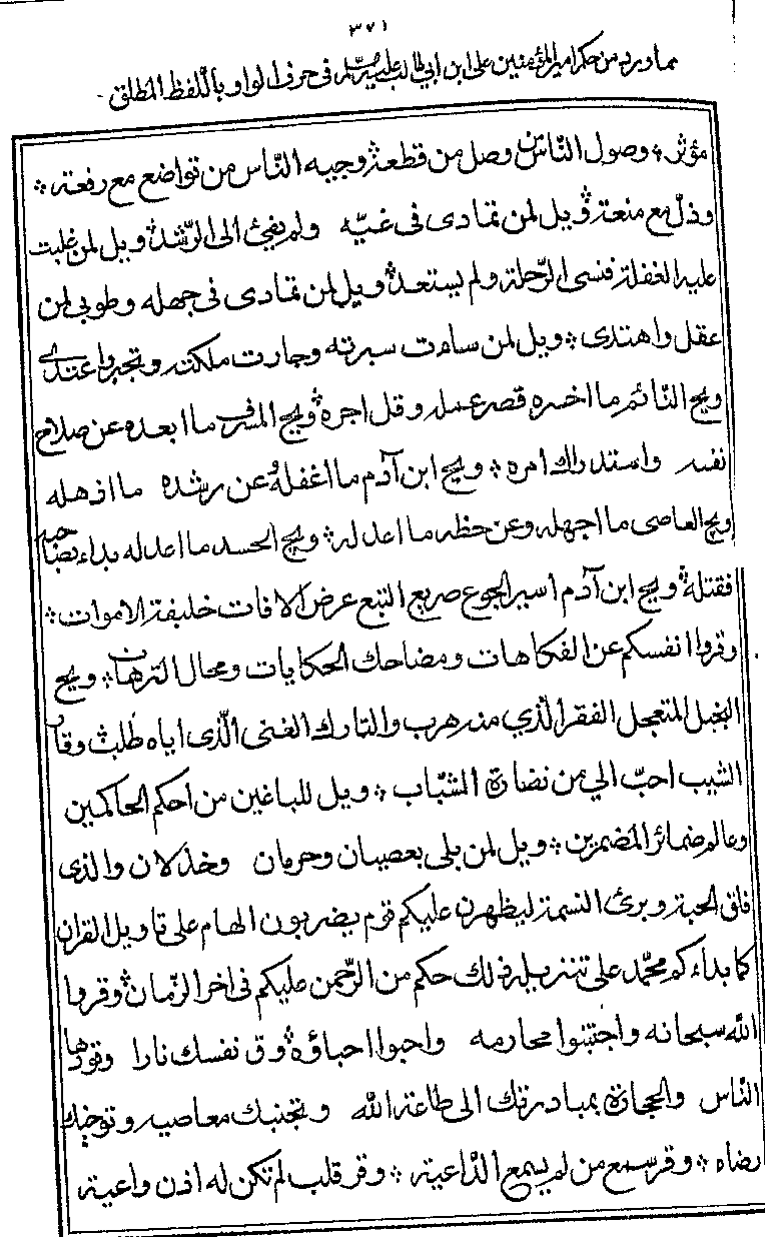 ٣٧١
مما ورد من حكم امير المؤمنين على ابن ابي طالب عليه السلام فى حرف الواو باللّفظ المطلق
مؤثر ⁘ وصول النّاس من وصل من قطعة ⁘ وجيه النّاس من تواضع مع رفعة ⁘
وذلّ مع منعة ⁘ ويل لمن تمادى فى غيّه ولم يفئ الى الرّشد ⁘ ويل لمن غلبت
عليه الغفلة فنسى الرّحلة ولم يستعد ⁘ ويل لمن تمادى فى جهله وطوبى لمن
عقل واهتدى ⁘ ويل لمن ساءت سيرته وجارت ملكته وتجبر واعتدى
ويح النائم ما اخسره قصر عمله وقل اجره ⁘ ويح المسرف ما ابعده عن صلاح
نفسه واستدراك امره ⁘ ويح ابن آدم ما اغفله وعن رشده ما اذهله
ويح العاصى ما اجهله وعن حظه ما اعدله ⁘ ويح الحسد ما اعدله بداء بصاحبه
فقتله ⁘ ويح ابن آدم اسير الجوع صريع الشبع عرض الافات خليفة الاموات ⁘
وقروا انفسكم عن الفكاهات ومضاحك الحكايات ومحال الترهات ⁘ ويح
البخيل المتعجل الفقر الّذي منه هرب والتارك الغنى الّذى اياه طلب ⁘ وقار
الشيب احبّ الي من نضارة الشّباب ⁘ ويل للباغين من احكم الحاكمين
وعالم ضمائر المضمرين ⁘ ويل لمن بلى بعصيان وحرمان وخذلان والذى
فلق الحبة وبرئ النسمة ليظهرن عليكم قوم يضربون الهام على تاويل القران
كما بداءكم محمّد على تنزيله ذلك حكم من الرّحمن عليكم فى اخر الزّمان ⁘ وقروا
الله سبحانه واجتنبوا محارمه واحبوا احباؤه ⁘ وق نفسك نارا وقودها
النّاس والحجارة بمبادرتك الى طاعة الله وتجنبك معاصيه وتوخيك
رضاه ⁘ وقر سمع من لم يسمع الدّاعية ⁘ وقر قلب لم تكن له اذن واعية